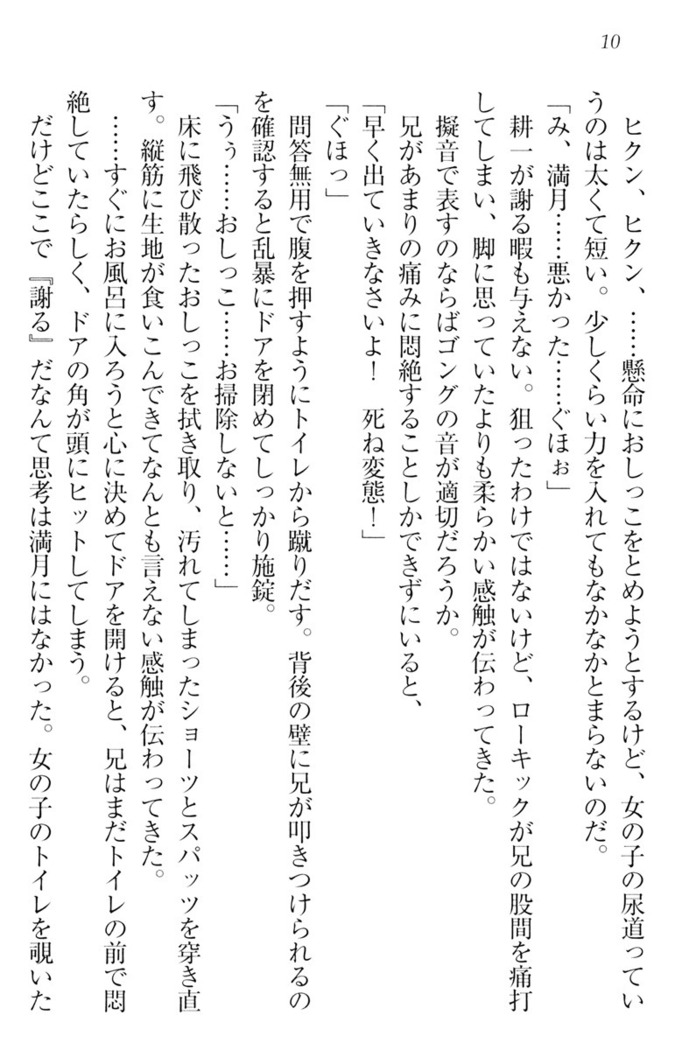 10
ヒクン、ヒクン、……懸命におしっこをとめようとするけど、女の子の尿道ってい
うのは太くて短い。少しくらい力を入れてもなかなかとまらないのだ。
「み、満月……悪かった……ぐほぉ」
耕一が謝る暇も与えない。狙ったわけではないけど、ローキックが兄の股間を痛打
してしまい、脚に思っていたよりも柔らかい感触が伝わってきた。
擬音で表すのならばゴングの音が適切だろうか。
兄があまりの痛みに悶絶することしかできずにいると、
「早く出ていきなさいよ！　死ね変態！」
「ぐほっ」
問答無用で腹を押すようにトイレから蹴りだす。背後の壁に兄が叩きつけられるの
を確認すると乱暴にドアを閉めてしっかり施錠。
「うぅ……おしっこ……お掃除しないと……」
床に飛び散ったおしっこを拭き取り、汚れてしまったショーツとスパッツを穿き直
す。縦筋に生地が食いこんできてなんとも言えない感触が伝わってきた。
……すぐにお風呂に入ろうと心に決めてドアを開けると、兄はまだトイレの前で悶
絶していたらしく、ドアの角が頭にヒットしてしまう。
だけどここで『謝る』だなんて思考は満月にはなかった。女の子のトイレを覗いた